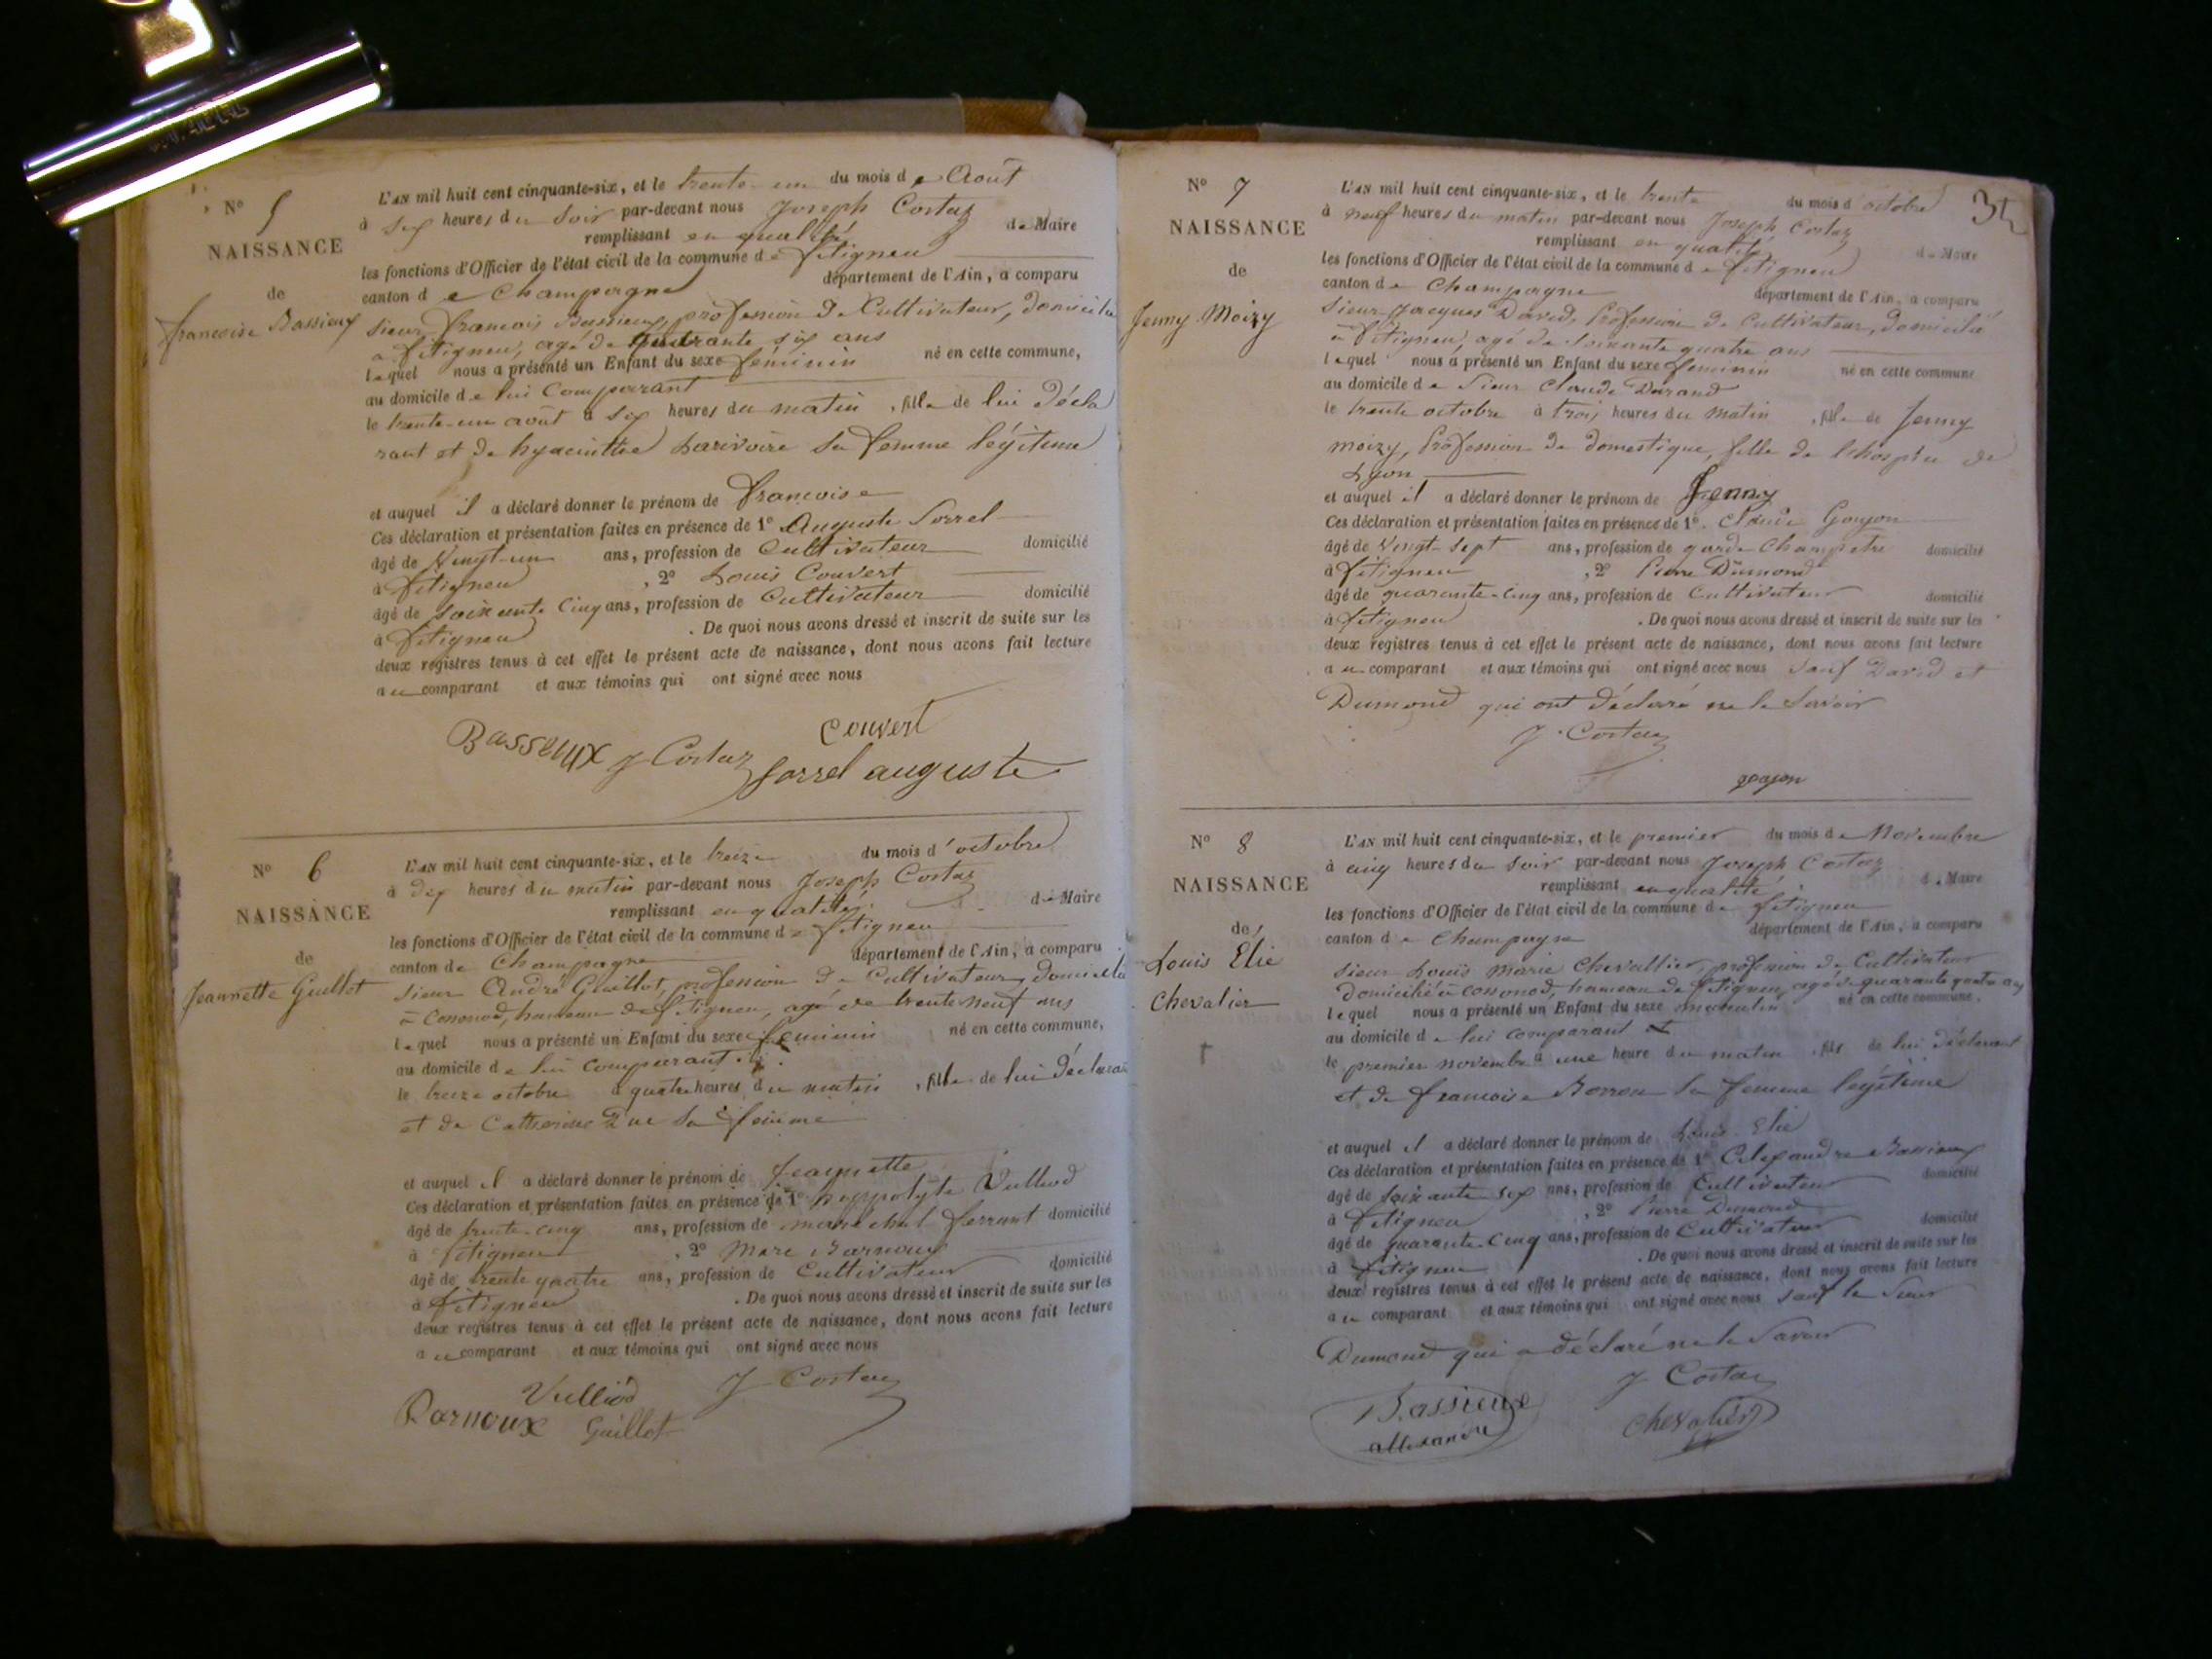 N° 5
NAISSANCE
de
francoise Bassieux
L'AN mil huit cent cinquante-six, et le trente-un du mois de Août
à six heures du soir par-devant nous Joseph Costaz
remplissant en qualité de Maire
les fonctions d'Officier de l'état civil de la commune de fitignieu
canton de Champagne département de l'Ain, a comparu
sieur francois Bassieux, profession de Cultivateur, domicilié
à fitignieu, agé de quarante six ans
lequel nous a présenté un Enfant du sexe féminin né en cette commune,
au domicile de lui Comparrant
le trente-un août à six heures du matin, fille de lui décla
rant et de hyacinthe Larivoire sa femme légitime
et auquel il a déclaré donner le prénom de francoise
Ces déclaration et présentation faites en présence de 1° Auguste Sorrel
âgé de Vingt-un ans, profession de Cultivateur domicilié
à fitignieu, 2° Louis Couvert
âgé de soixante Cinq ans, profession de Cultivateur domicilié
à fitignieu. De quoi nous avons dressé et inscrit de suite sur les
deux registres tenus à cet effet le présent acte de naissance, dont nous avons fait lecture
au comparant et aux témoins qui ont signé avec nous
Couvert
Bassieux J Costaz Sorrel auguste
N° 6
NAISSANCE
de
Jeannette Guillot
L'AN mil huit cent cinquante-six, et le treize du mois d'octobre
à dix heures du matin par-devant nous Joseph Costaz
remplissant en qualité de Maire
les fonctions d'Officier de l'état civil de la commune de fitignieu
canton de Champagne département de l'Ain, a comparu
sieur André Guillot, profession de Cultivateur, domicilié
à Cononod, hameau de fitignieu, agé de trente neuf ans
lequel nous a présenté un Enfant du sexe feminin né en cette commune,
au domicile de lui comparant
le treize octobre à quatre heures du matin, fille de lui déclarant
et de Catherine sa femme
et auquel il a déclaré donner le prénom de Jeannette
Ces déclaration et présentation faites en présence de 1° hyppolyte Vulliod
âgé de trente-cinq ans, profession de maréchal ferrant domicilié
à fitignieu, 2° Marc Barnoux
âgé de trente quatre ans, profession de Cultivateur domicilié
à fitignieu. De quoi nous avons dressé et inscrit de suite sur les
deux registres tenus à cet effet le présent acte de naissance, dont nous avons fait lecture
au comparant et aux témoins qui ont signé avec nous
Vulliod J Costaz
Barnoux Guillot
34
N° 7
NAISSANCE
de
Jenny Moizy
L'AN mil huit cent cinquante-six, et le trente du mois d'octobre
à neuf heures du matin par-devant nous Joseph Costaz
remplissant en qualité de Maire
les fonctions d'Officier de l'état civil de la commune de fitignieu
canton de Champagne département de l'Ain, a comparu
sieur Jacques David, Profession de Cultivateur, domicilié
à fitignieu, agé de soixante quatre ans
lequel nous a présenté un Enfant du sexe feminin né en cette commune
au domicile de sieur Claude Durand
le trente octobre à trois heures du matin, fille de Jenny
moizy, Profession de domestique, fille de l'hospice de
Lyon
et auquel il a déclaré donner le prénom de Jenny
Ces déclaration et présentation faites en présence de 1° Claude Goujon
âgé de Vingt-sept ans, profession de garde Champetre domicilié
à fitignieu, 2° Pierre Dumond
âgé de quarante-cinq ans, profession de Cultivateur domicilié
à fitignieu. De quoi nous avons dressé et inscrit de suite sur les
deux registres tenus à cet effet le présent acte de naissance, dont nous avons fait lecture
au comparant et aux témoins qui ont signé avec nous sauf David et
Dumond qui ont déclaré ne le savoir
J. Costaz
goujon
N° 8
NAISSANCE
de
Louis Elie
Chevalier
L'AN mil huit cent cinquante-six, et le premier du mois de Novembre
à cinq heures du soir par-devant nous Joseph Costaz
remplissant en qualité de Maire
les fonctions d'Officier de l'état civil de la commune de fitignieu
canton de Champagne département de l'Ain, a comparu
sieur Louis Marie Chevallier, profession de Cultivateur
domicilié à cononod, hameau de fitignieu, agé de quarante quatre ans
lequel nous a présenté un Enfant du sexe masculin né en cette commune,
au domicile de lui comparant
le premier novembre à une heure du matin, fils de lui déclarant
et de francoise Borron sa femme légitime
et auquel il a déclaré donner le prénom de Louis Elie
Ces déclaration et présentation faites en présence de 1° Alexandre Bassieux
âgé de soixante-six ans, profession de Cultivateur domicilié
à fitignieu, 2° Pierre Dumond
âgé de quarante-Cinq ans, profession de Cultivateur domicilié
à fitignieu. De quoi nous avons dressé et inscrit de suite sur les
deux registres tenus à cet effet le présent acte de naissance, dont nous avons fait lecture
au comparant et aux témoins qui ont signé avec nous sauf le sieur
Dumond qui a déclaré ne le savoir
J Costaz
Bassieux
allexandre
Chevalier